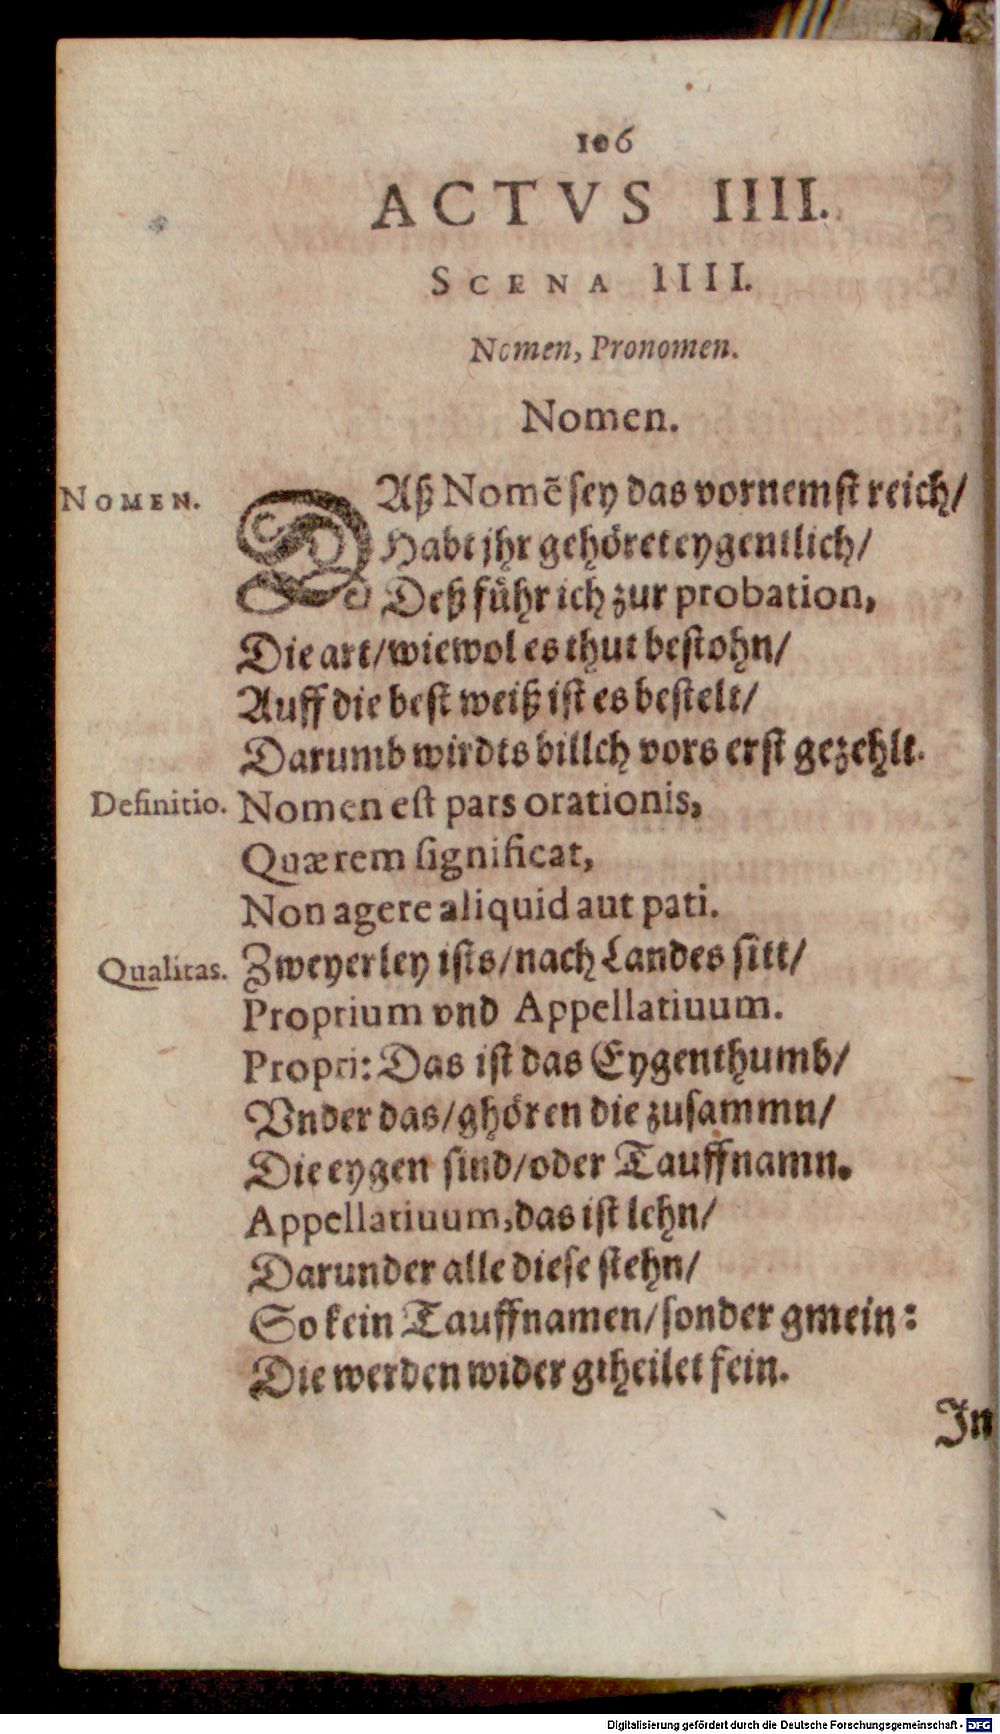 106
ACTVS IIII.
SCENA IIII.
Nomen, Pronomen.
Nomen.
NOMEN.
DAß Nomẽ sey das vornemst reich/
Habt jhr gehöret eygentlich/
Deß führ ich zur probation,
Die art/wiewol es thut bestohn/
Auff die best weiß ist es bestelt/
Darumb wirdts billch vors erst gezehlt.
Definitio. Nomen est pars orationis,
Quæ rem significat,
Non agere aliquid aut pati.
Qualitas. Zweyerley ists/nach Landes sitt/
Proprium vnd Appellatiuum.
Propri: Das ist das Eygenthumb/
Vnder das/ghören die zusammn/
Die eygen sind/oder Tauffnamn.
Appellatiuum, das ist lehn/
Darunder alle diese stehn/
So kein Tauffnamen/sonder gmein:
Die werden wider gtheilet fein.
In
Digitalisierung gefördert durch die Deutsche Forschungsgemeinschaft - DFG